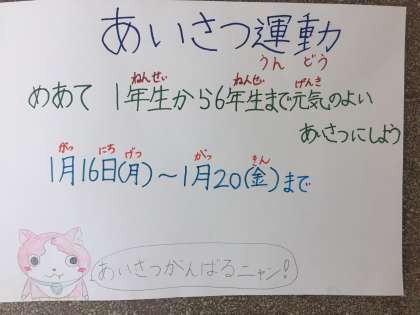 あいさつ運動
うんどう
ねんせい ねんせい げんき
めあて 1年生から6年生まで元気のよい
あいさつにしよう
がつ にち げつ がつ きん
1月16日(月)〜1月20(金)まで
あいさつがんばるニャン!